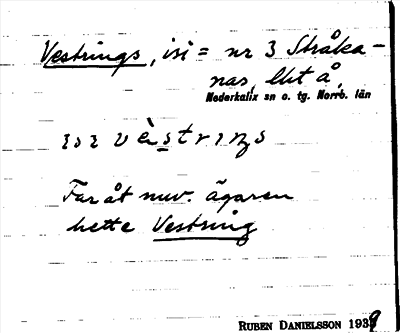 Vestrings, isi = nr 3 Stråka-
nas, lht å,
Nederkalix sn o. tg. Norrb. län
vèstrıŋs
Far åt nuv. ägaren
hette Vestring
RUBEN DANIELSSON 1939